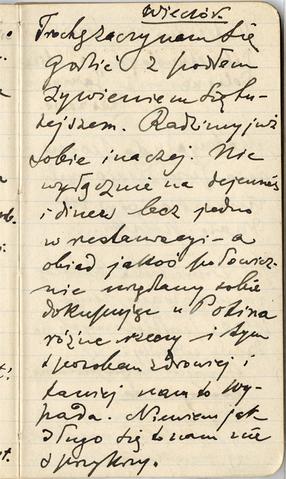 Wieczór.
Trochę zaczynam się
godzić z podłem
żywieniem się tu-
tejszem. Radzimy już
sobie inaczej. Nie
wyłącznie na dejeuner
i diner lecz jedno
w restauracyi - a
obiad jakoś połowicz-
nie urządzamy sobie
dokupując u Potina
różne rzeczy i tym
sposobem zdrowiej i
taniej nam to wy-
pada. Nie wiem jak
długo się to nam nie
sprzykrzy.